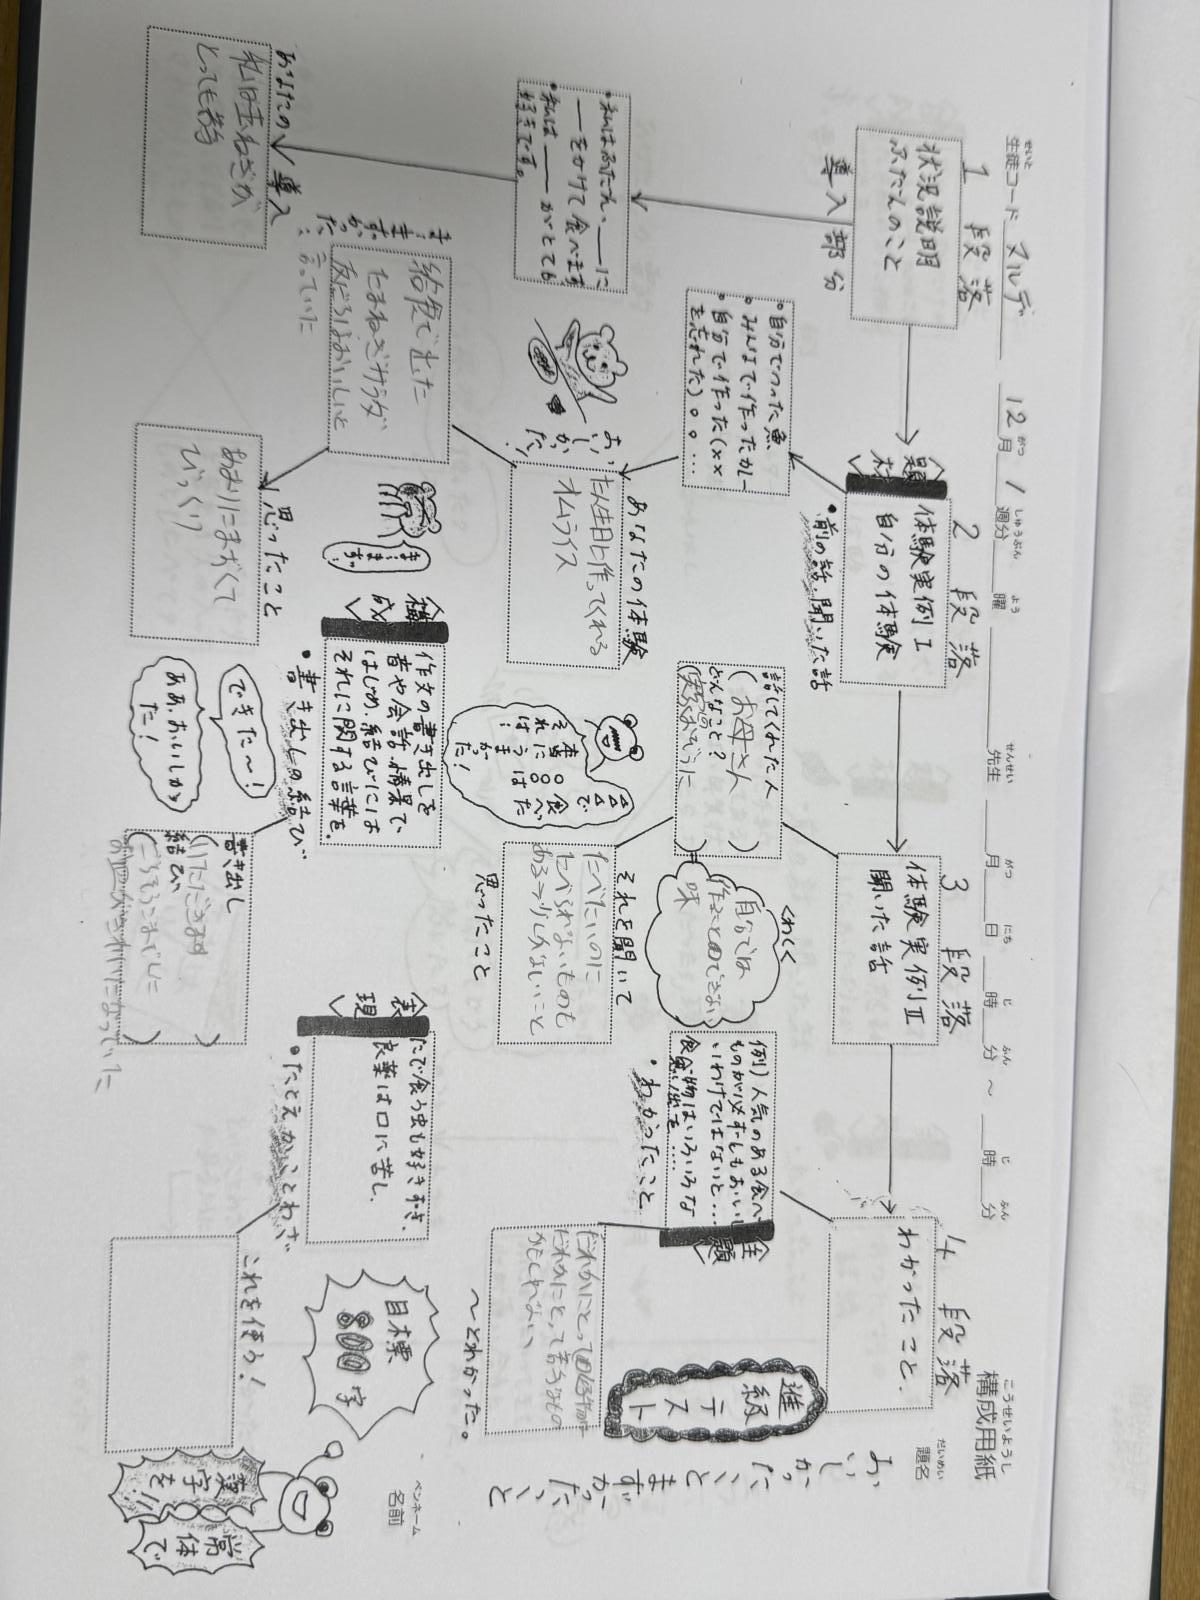 構成用紙
こうせいようし
題名
だいめい
おいしかったこと
まずかったこと
名前
ペンネーム
せいと
生徒コード
12月1週分 曜 先生 月 日 時 分 ～ 時 分
1段落
状況説明
ふだんのこと
導入部分
・私はふだん、――に
――をかけて食べます
・私は――がとても
好きです。
あなたの導入
私は玉ねぎが
とっても
2段落
体験実例Ⅰ
自分の体験
・前の話、聞いた話
〈題材〉
・自分でつった魚
・みんなで作ったカレー
・自分で作った(××
を忘れた)。。…
おいしかった!
あなたの体験
たん生日に作ってくれる
オムライス
まずかった…
給食で出た
たまねぎサラダ
反ごろはおいしいと
言っていた
まずっ!
思ったこと
あまりにまずくて
びっくり
3段落
体験実例Ⅱ
聞いた話
話してくれた人
(お母さん)
どんなこと?
くわしく
自分では
作ることのできない
味
△△で
食べた
○○は
本当に
うまかった!
それを聞いて
思ったこと
たべたいのに
たべられないものも
ある→少しがないこと
〈構成〉
作文の書き出しを
音や会話、情景で
はじめ、結びには
それに関する言葉を。
・書き出しの結び
できた～!
ああ、おいしかった!
書き出し
(いただきます)
結び
(ごちそうさまでした
4段落
わかったこと。
例)人気のある食べ
ものが必ずしもおいし
いわけではないと…
食べ物はいろいろな
思い出を……
・わかったこと
〈主題〉
だれかにとって
だれかにとって
かもしれない
～とわかった。
〈表現〉
たで食う虫も好きずき。
良薬は口に苦し。
・たとえかことわざ
これを使う!
進級テスト
目標
800字
漢字を!!
常体で